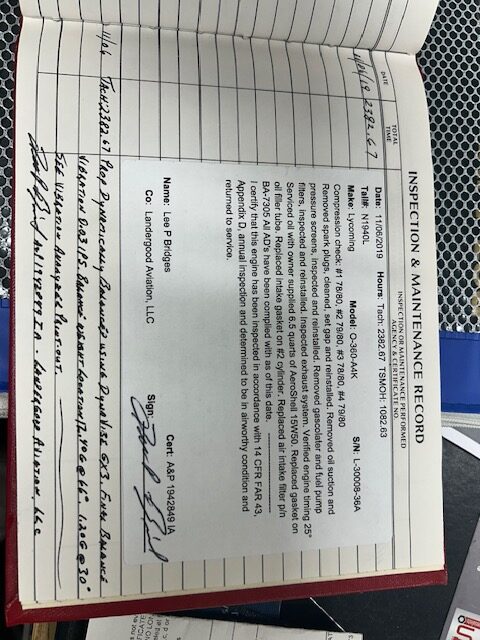 INSPECTION & MAINTENANCE RECORD
DATE
TOTAL TIME
INSPECTION OR MAINTENANCE PERFORMED
AGENCY & CERTIFICATE NO.
2382.67
Date: 11/06/2019 Hours: Tach: 2382.67 TSMOH: 1082.63
Tail#: N1940L
Make: Lycoming Model: O-360-A4K S/N: L-30008-36A
Compression check: #1 78/80, #2 79/80, #3 78/80, #4 79/80
Removed spark plugs, cleaned, set gap and reinstalled. Removed oil suction and
pressure screens, inspected and reinstalled. Removed gascolater and fuel pump
filters, inspected and reinstalled. Inspected exhaust system. Verified engine timing 25°
Serviced oil with owner supplied 6.5 quarts of AeroShell 15W50. Replaced gasket on
oil filler tube. Replaced intake gasket on #2 cylinder. Replaced air intake filter p/n
BA-7305 All AD's have been complied with as of this date.
I certify that this engine has been inspected in accordance with 14 CFR FAR 43,
Appendix D, annual inspection and determined to be in airworthy condition and
returned to service.
Name: Lee P Bridges Cert: A&P 1942849 IA
Co: Landergood Aviation, LLC Sign:
11/06 TACH 2382.67 PROP DYNAMICALLY BALANCED USING DYNAVIBE GX3. FINAL BALANCE
VIBRATION 0.03 IPS BALANCE WEIGHT LOCATION 17.40G @ 66° 1.20G @ 30°
SEE VIBRATION ANALYZER PRINT OUT.
1942849 I.A. - LANDERGOOD AVIATION, LLC